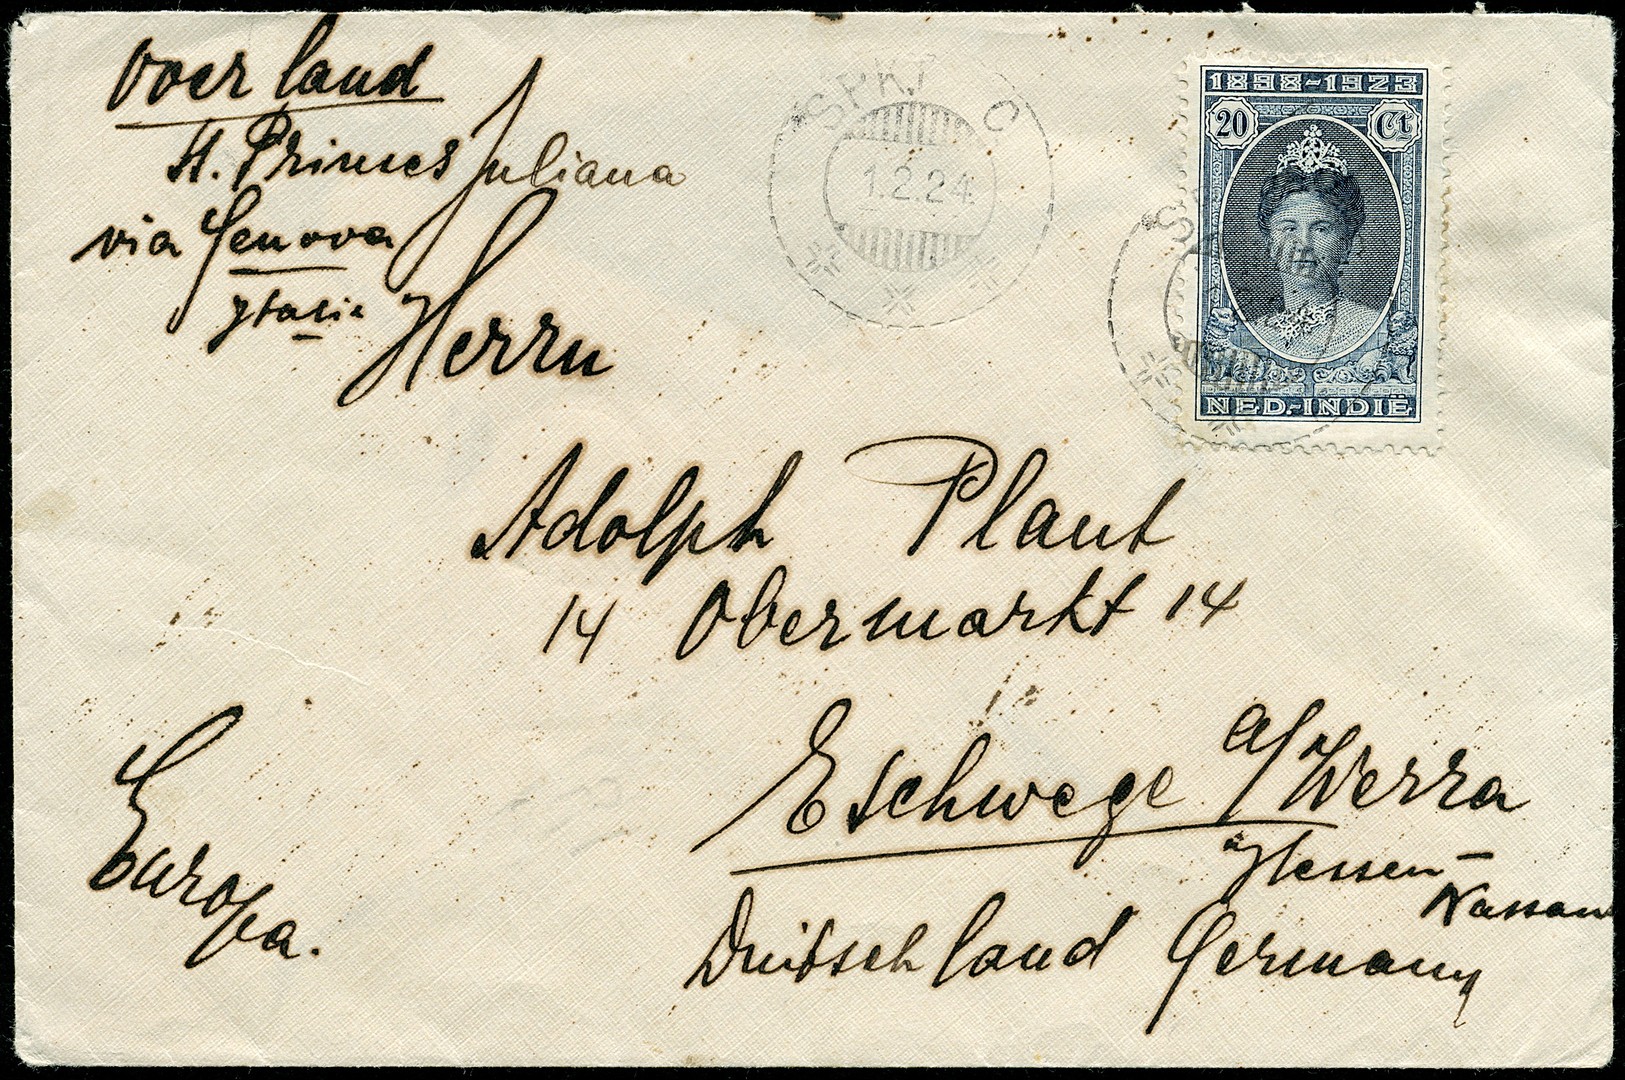 Over land
St. Prinses Juliana
via Genova
Italia
Herrn
Adolph Plaut
14 Obermarkt 14
Eschwege a/Werra
Hessen-
Nassau
Duitschland Germany
Europa.
1.2.24
1898-1923
20 Ct
NED.-INDIË